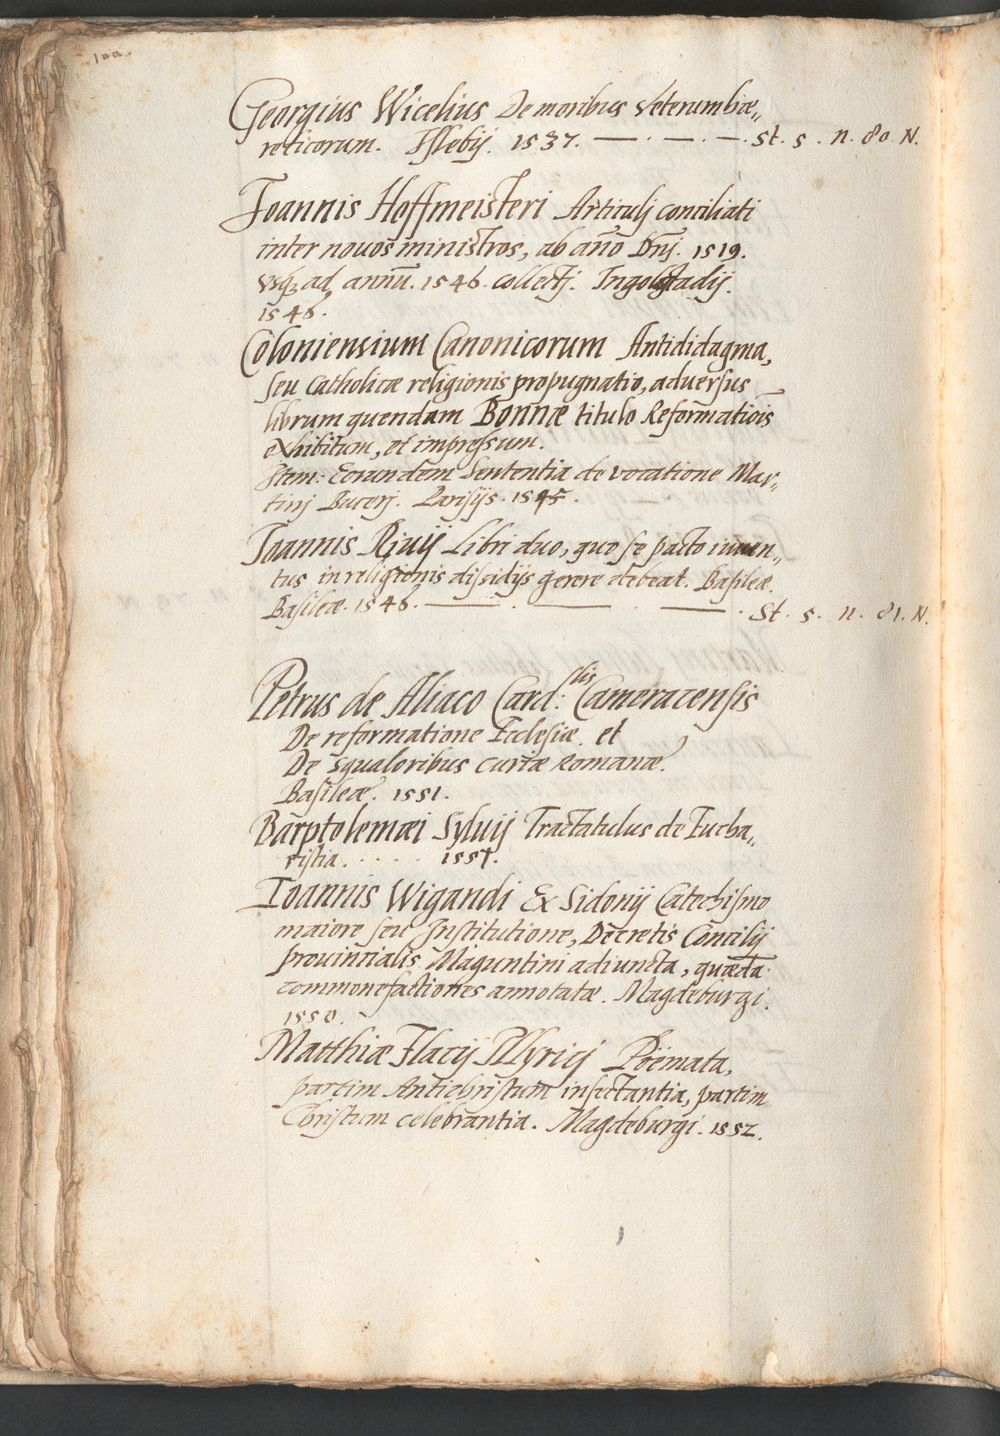 100.
Georgius Wicelius De moribus veterum hæ„
reticorum. Islebij. 1537. — . — . — . St. 5 . n. 80 N.
Joannis Hoffmeisteri Articulj conciliati
inter nouos ministros, ab año Dñj. 1519.
vsq; ad annũ. 1546. collectj. Ingolstadij.
1546.
Coloniensium Canonicorum Antididagma,
seu Catholicæ religionis propugnatio, aduersus
librum quendam Bonnæ titulo Reformatiois
exhibitum, et impressum.
Item: Eorundem Sententia de vocatione Mar„
tinj Bucerj. Parisijs. 1545.
Joannis Riuij Libri duo, quo se pacto iuuen„
tus in religionis dissidijs gerere debeat. Basileæ.
Basileæ. 1546. — . — — . St. 5. n. 81. N.
Petrus de Aliaco Card:lis Cameracensis
De reformatione Ecclesiæ. et
De squaloribus curiæ Romanæ.
Basileæ. 1551.
Barptolemæi Syluij Tractatulus de Eucha„
ristia. . . . . . 1551.
Ioannis Wigandi Ex Sidonij Catechismo
maiore seu Institutione, Decretis Concilij
prouintialis Maguntini adiuncta, quæda
commonefactiones annotatæ. Magdeburgi.
1550.
Matthiæ Flacij Illyricj Poëmata,
partim Antichristum insectantia, partim
Christum celebrantia. Magdeburgi. 1552.